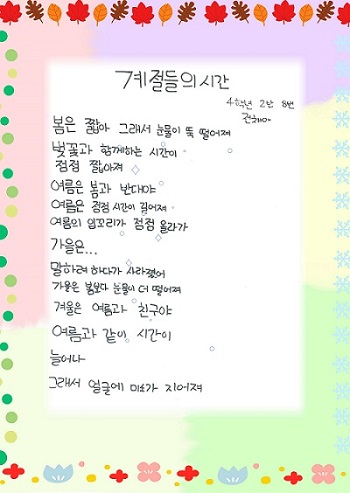 7계절들의 시간
4학년 2반 8번
봄은 짧아 그래서 눈물이 뚝 떨어져
벚꽃과 함께하는 시간이
점점 짧아져
여름은 봄과 반대야
여름은 점점 시간이 길어져
여름의 입꼬리가 점점 올라가
가을은...
말하려 하다가 사라졌어
가을은 봄보다 눈물이 더 떨어져
겨울은 여름과 친구야
여름과 같이 시간이
늘어나
그래서 얼굴에 미소가 지어져